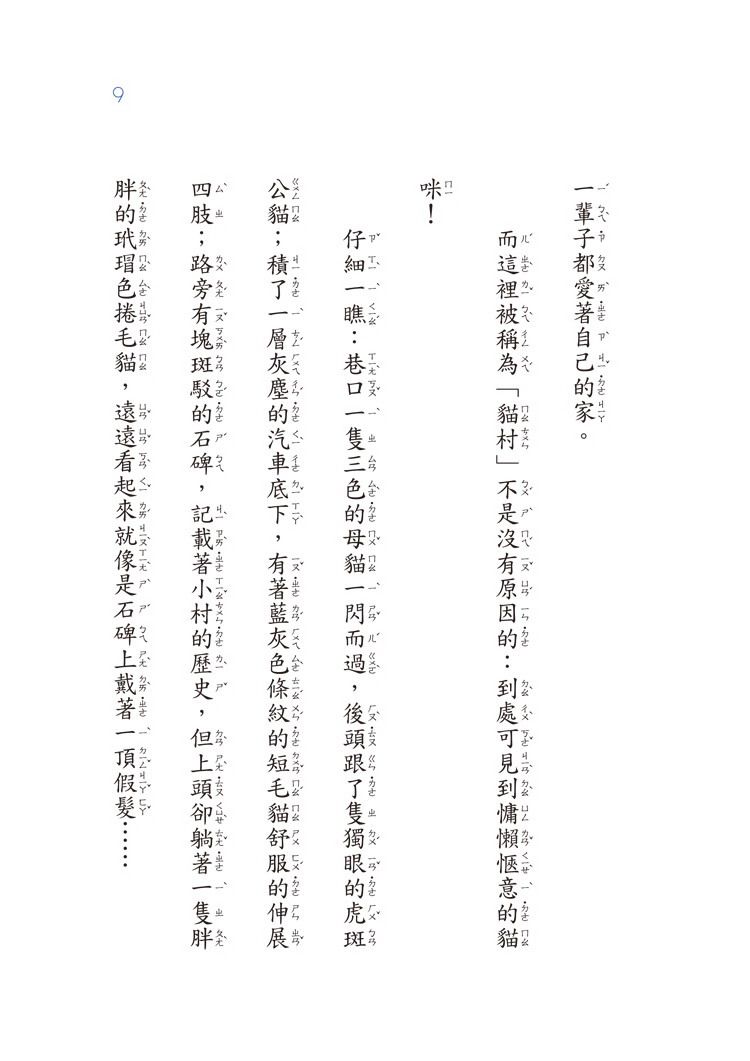 9
一輩子都愛著自己的家。
而這裡被稱為「貓村」不是沒有原因的：到處可見到慵懶愜意的貓
咪！
仔細一瞧：巷口一隻三色的母貓一閃而過，後頭跟了隻獨眼的虎斑
公貓；積了一層灰塵的汽車底下，有著藍灰色條紋的短毛貓舒服的伸展
四肢；路旁有塊斑駁的石碑，記載著小村的歷史，但上頭卻躺著一隻胖
胖的玳瑁色捲毛貓，遠遠看起來就像是石碑上戴著一頂假髮……